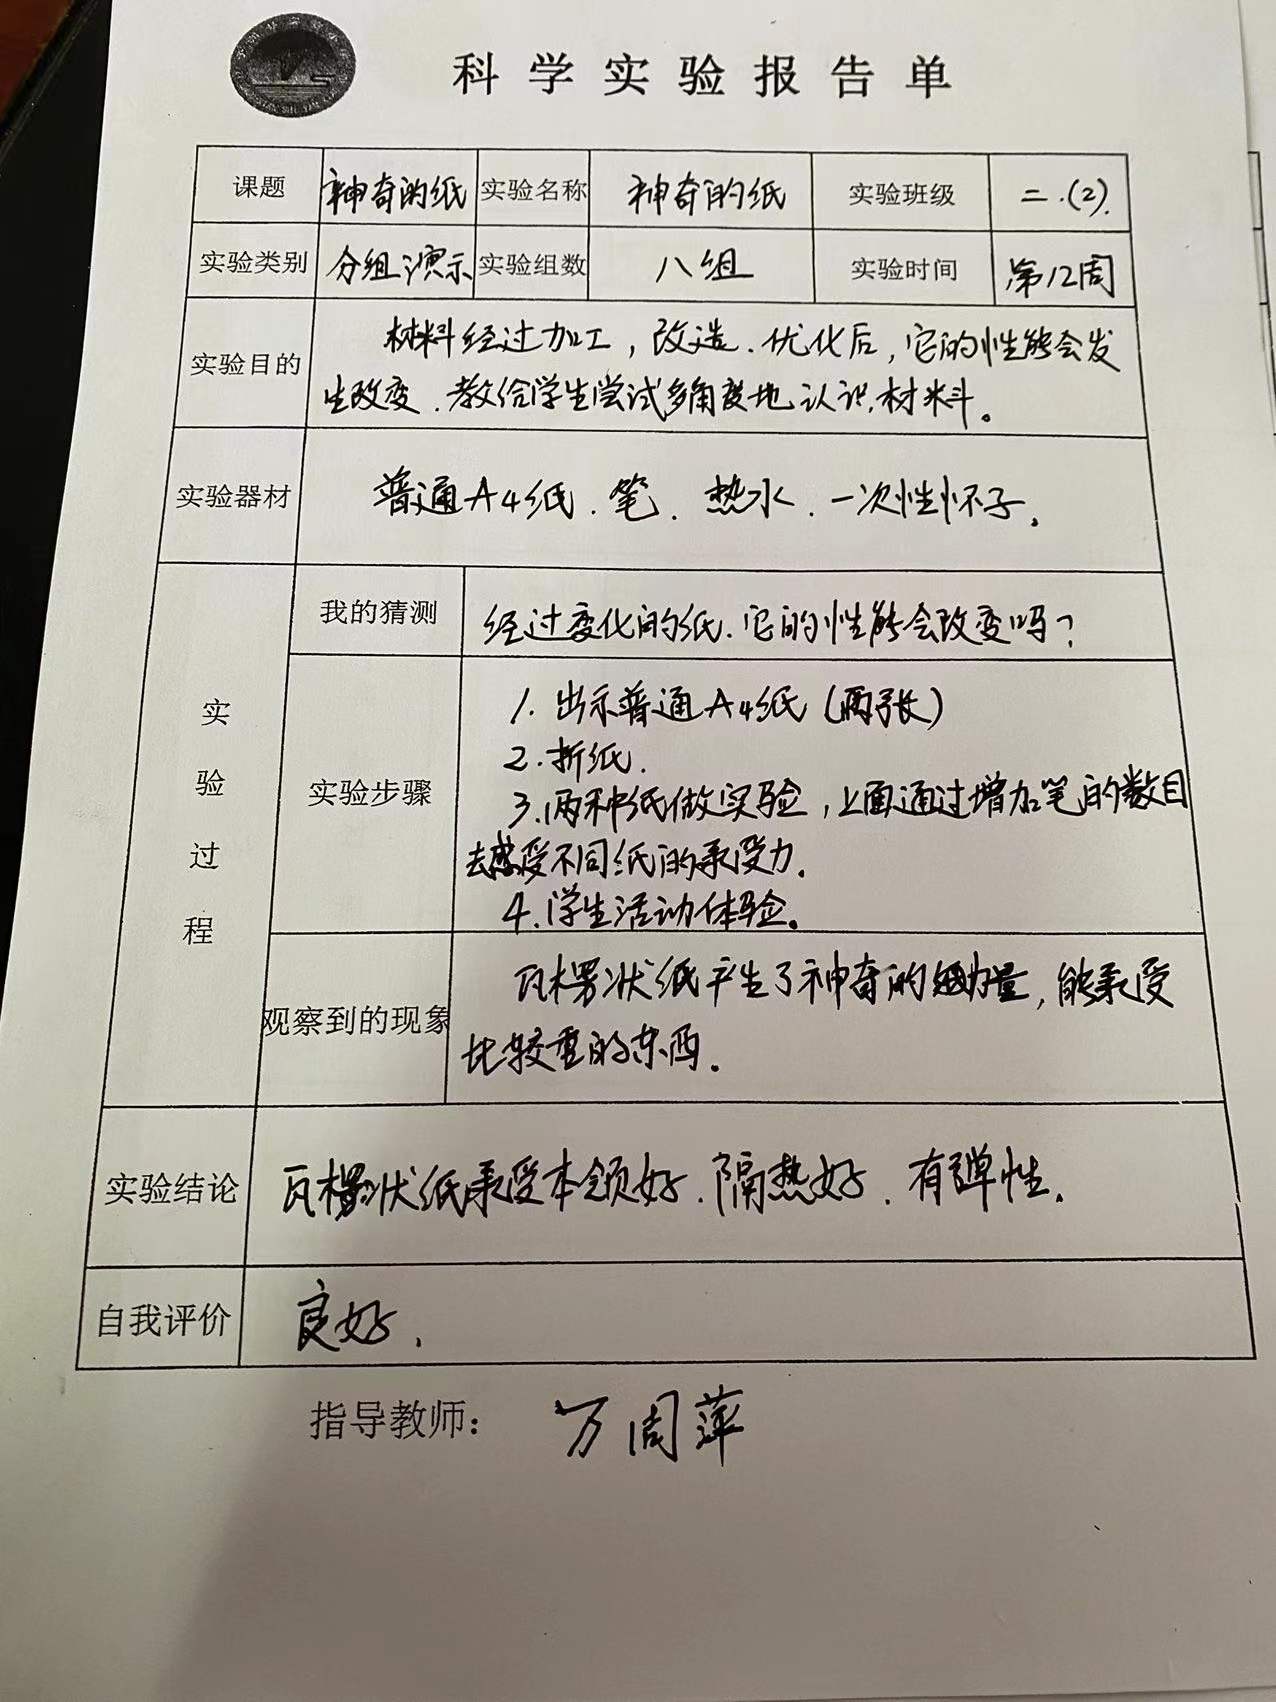 科学实验报告单
课题 神奇的纸 实验名称 神奇的纸 实验班级 二.(2).
实验类别 分组演示 实验组数 八组 实验时间 第12周
实验目的
材料经过加工,改造.优化后,它的性能会发
生改变.教给学生尝试多角度地认识材料。
实验器材 普通A4纸.笔.热水.一次性怀子。
实验过程
我的猜测 经过变化的纸.它的性能会改变吗?
实验步骤
1.出示普通A4纸(两张)
2.折纸.
3.两种纸做实验,上面通过增加笔的数目
去感受不同纸的承受力.
4.学生活动体验。
观察到的现象
瓦楞状纸产生了神奇的力量,能承受
比较重的东西.
实验结论 瓦楞状纸承受本领好.隔热好.有弹性.
自我评价 良好.
指导教师: 万周萍